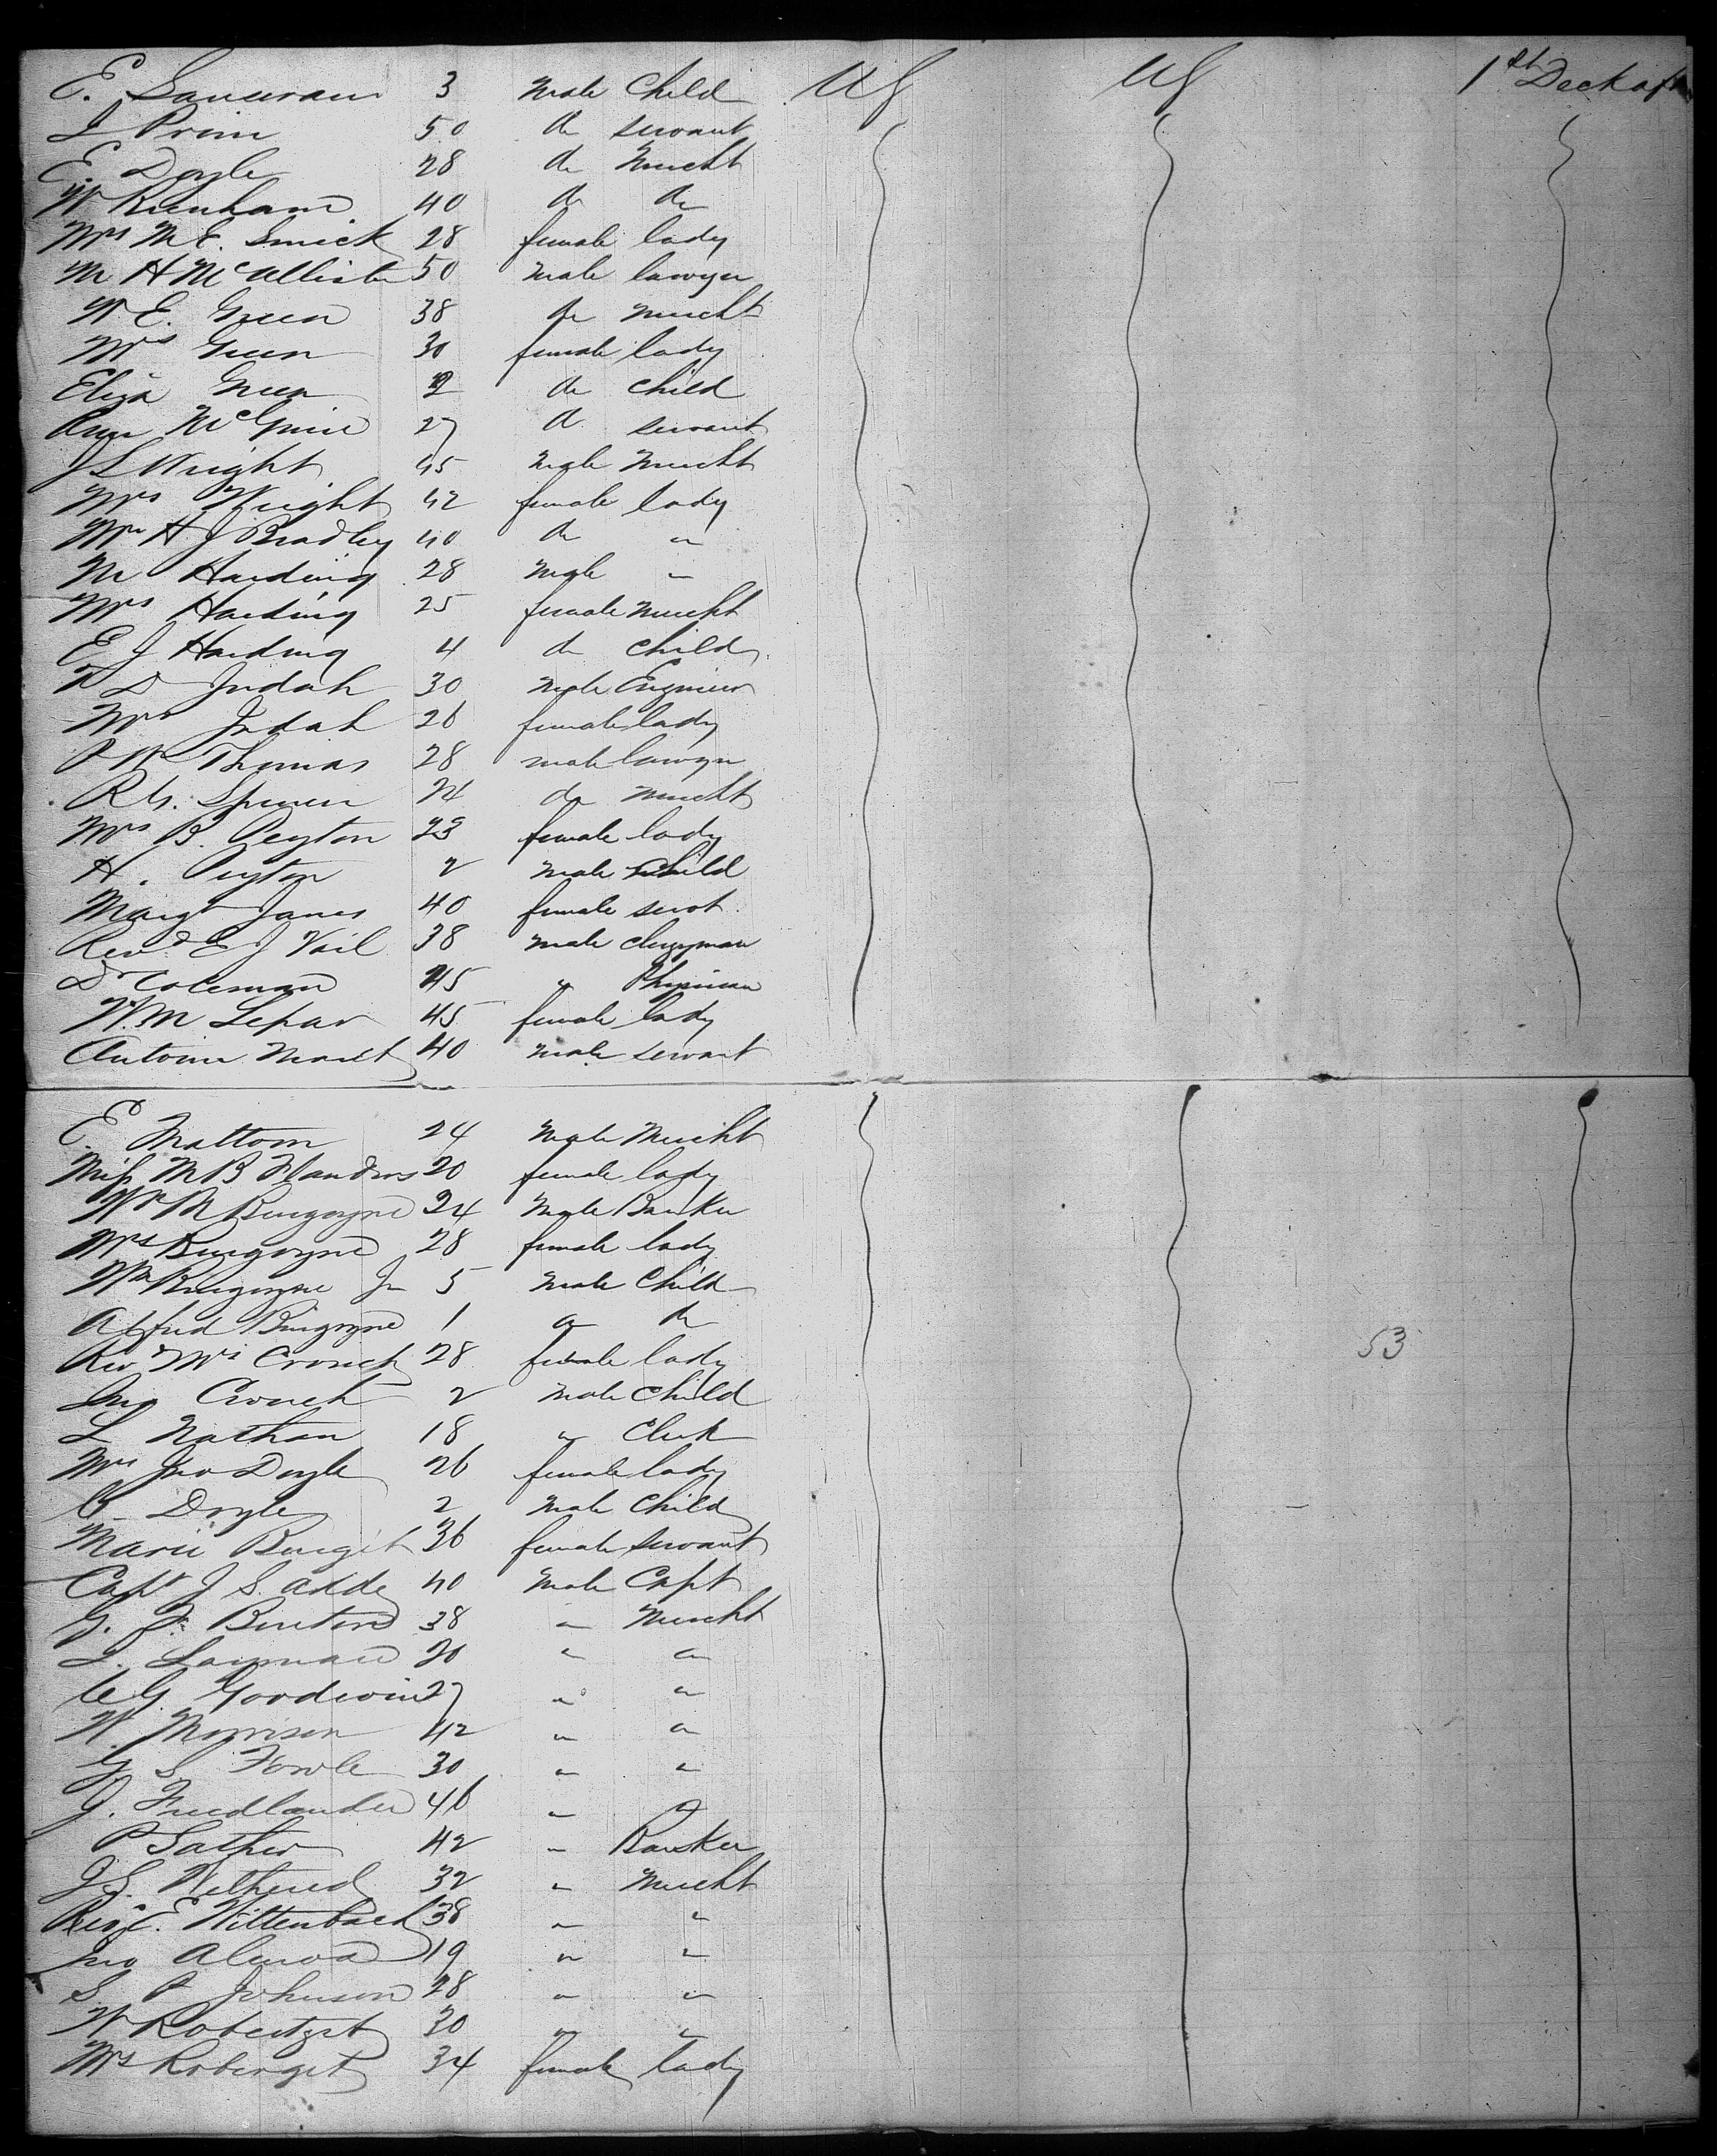 E. Sauuvain 3 male Child US US 1st Deck aft
J Prim 50 do servant
E. Doyle 28 do Mercht
W Kienham 40 do do
Mrs M E. Smick 28 female lady
M H McAllister 50 male lawyer
W E. Green 38 do mercht
Mrs Green 30 female lady
Eliza Green 2 do child
Ann McGuire 27 do servant
J S Wright 45 male mercht
Mrs Wright 42 female lady
Mrs H J Bradley 40 do "
M Harding 28 male "
Mrs Harding 25 female mercht
E J Harding 4 do child
T D Judah 30 male Engineer
Mrs Judah 26 female lady
P W Thomas 28 male lawyer
R G. Spencer 24 do mercht
Mrs B. Peyton 23 female lady
H. Peyton 2 male child
Margt James 40 female servt.
Revd E J Vail 38 male clergyman
Dr Coleman 45 " Physician
W. M Lepar 45 female lady
Antoine Maret 40 male servant
E. Mattom 24 male Mercht
Miss M B Flanders 20 female lady
Wm M Burgoyne 24 male Banker
Mrs Burgoyne 28 female lady
Wm Burgoyne Jr 5 male Child
Alfred Burgoyne 1 do do
Rev Mrs Crouch 28 female lady 53
Jno Crouch 2 male child
L Nathan 18 " Clerk
Mrs Jno Doyle 26 female lady
C. Doyle 2 male child
Marie Burgit 36 female servant
Capt J S. Adde 40 male Capt
G. F. Burton 38 " Mercht
L. Layman 20 " "
C G Goodwin 27 " "
W. Morrison 42 " "
G S Fowle 30 " "
J. Friedlander 46 " "
P Sather 42 " Banker
J S. Wethered 32 " mercht
Rev E. Wittenbach 38 " "
Jno 19 " "
S. P Johnson 28 " "
W Robertget 30 " "
Mrs Roberget 34 female lady